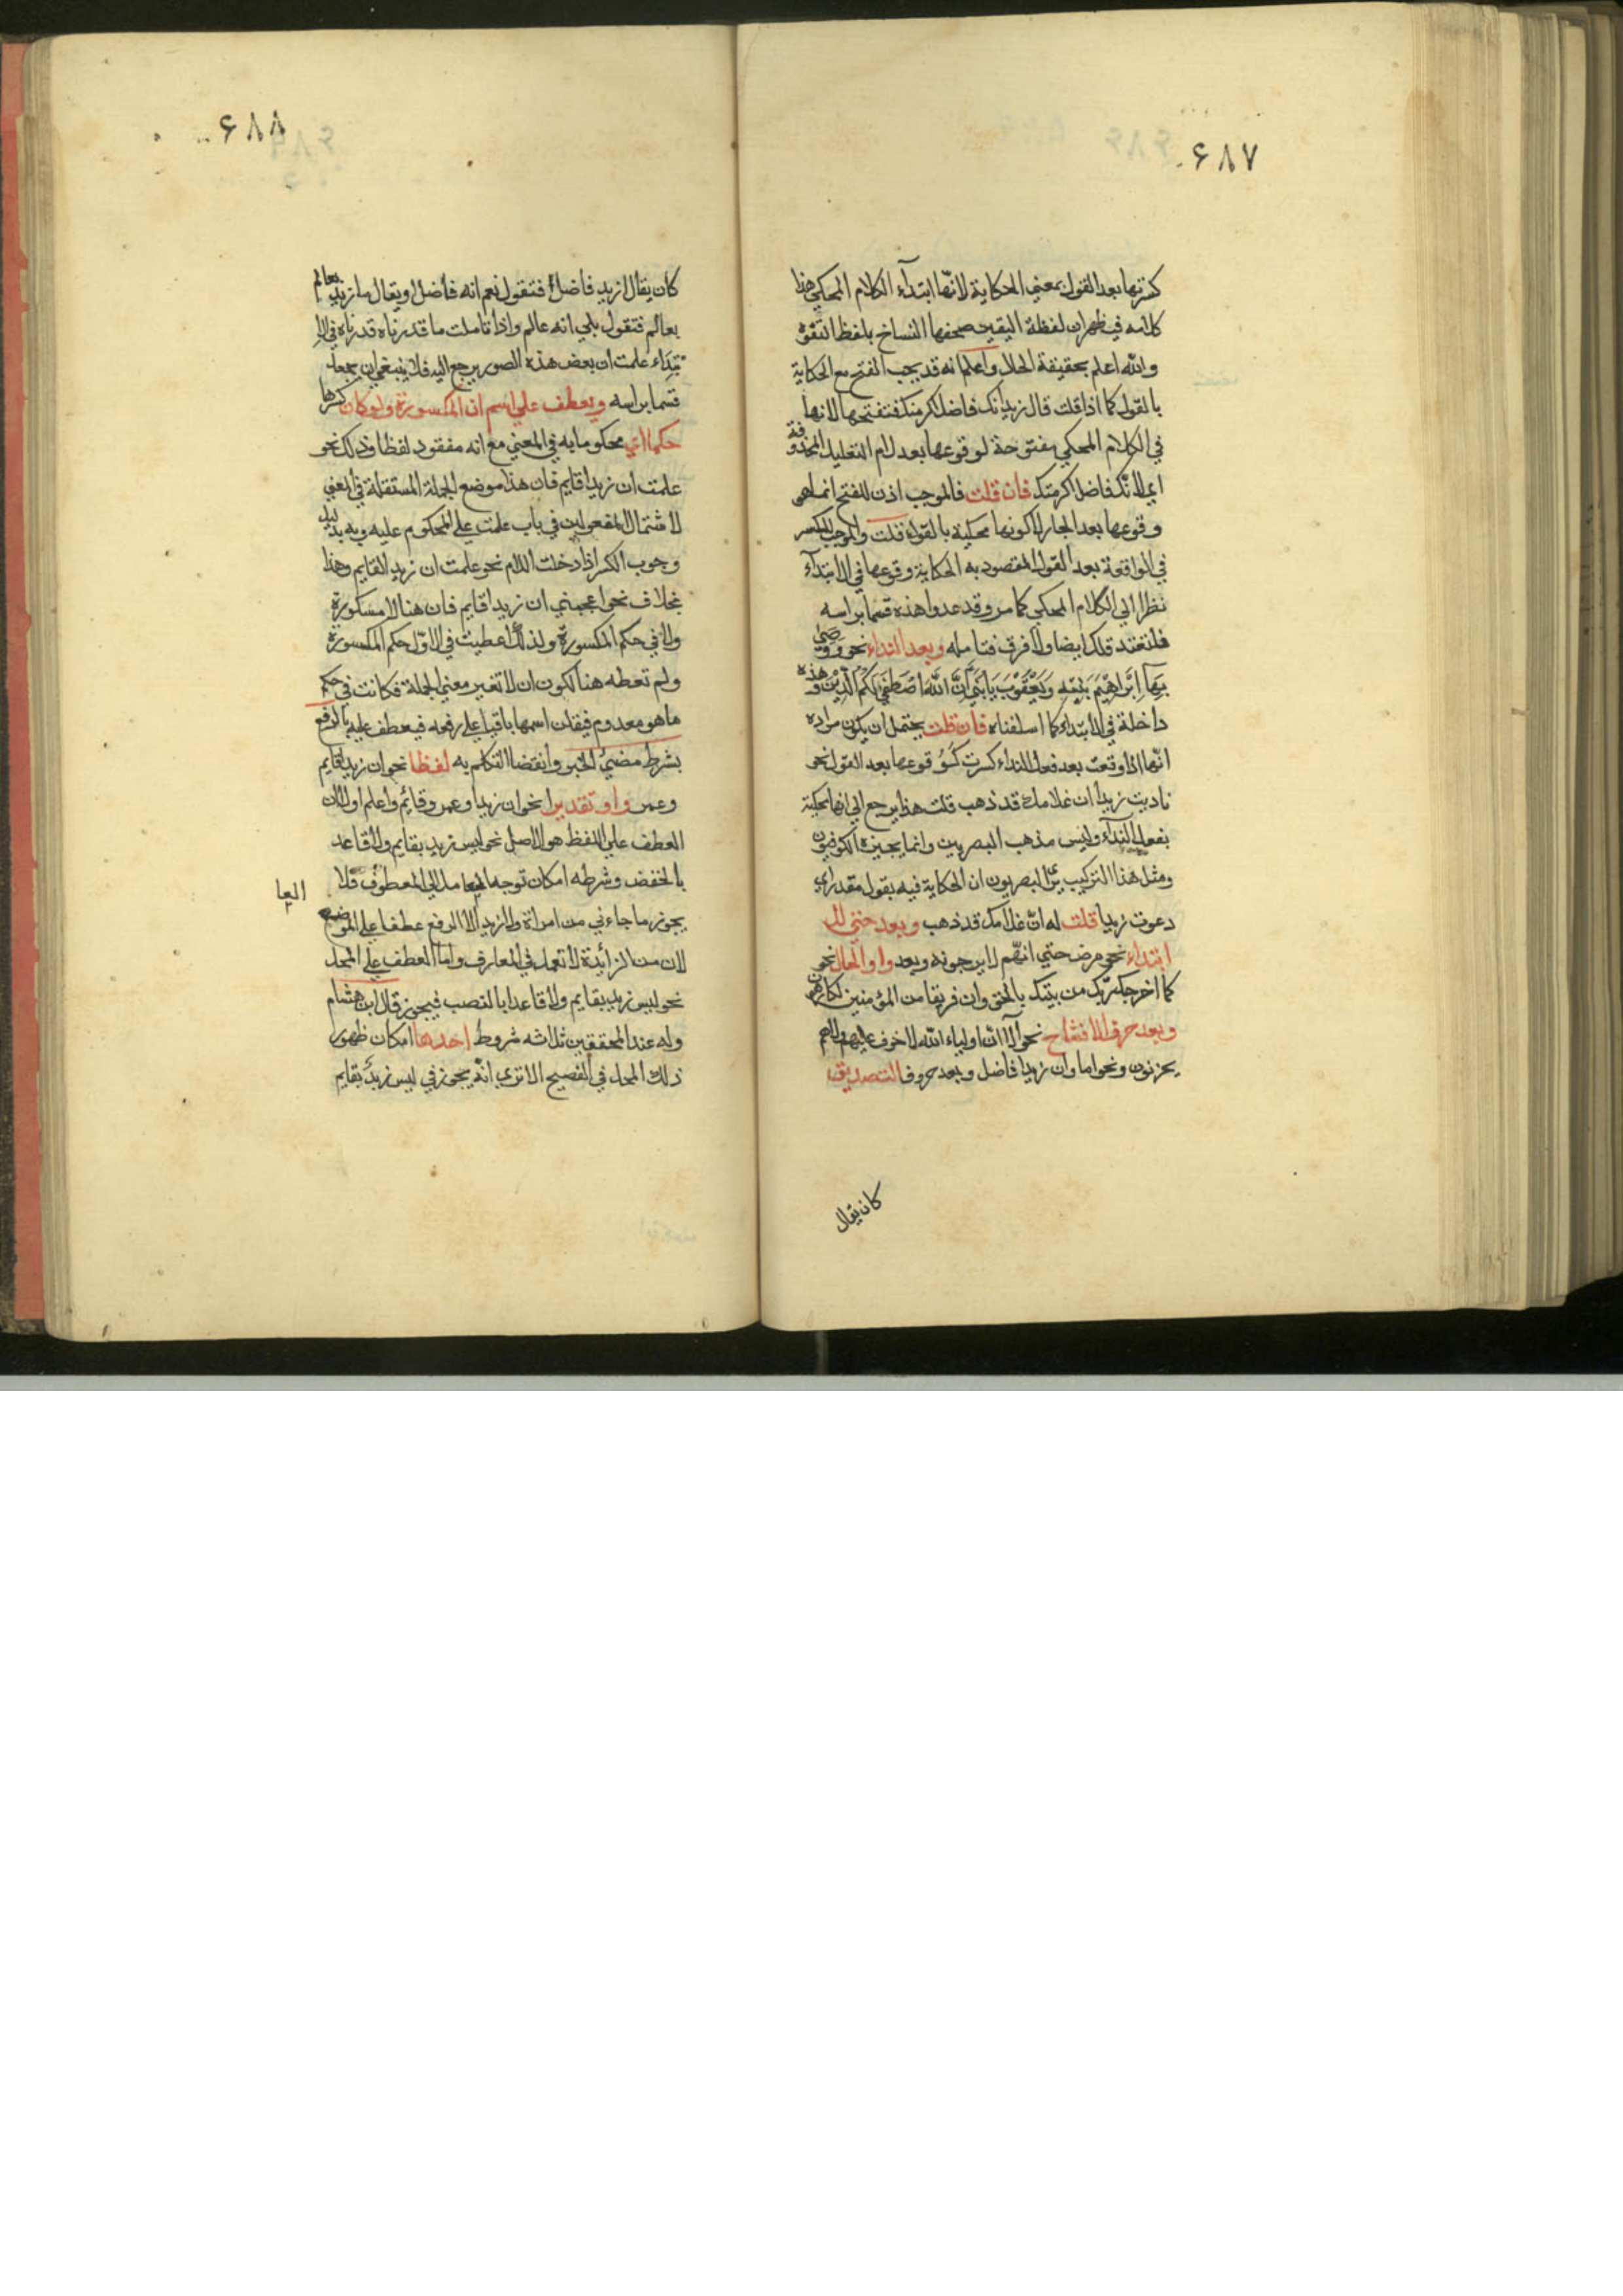 ۶۸۷
كسرتها بعد القول بمعنى الحكاية لانّها ابتدآء الكلام المحكي هذا
كلامه فيظهر ان لفظة اليقين صحفها النساخ بلفظ التفوّه
والله اعلم بحقيقة الحال واعلم انه قد يجب الفتح مع الحكاية
بالقول كما اذا قلت قال زيد انك فاضل اكرمتك فتفتحها لانها
في الكلام المحكي مفتوحة لوقوعها بعد لام التعليل المحذوفة
اي لانك فاضل اكرمتك فان قلت فالموجب اذن للفتح انما هو
وقوعها بعد الجار لا كونها محكية بالقول قلت والموجب للكسر
في الواقعة بعد القول المقصود به الحكاية وقوعها في الابتدآء
نظرا الي الكلام المحكي كما مر وقد عدوا هذه قسما براسه
فلتعتد تلك ايضا ولا فرق فتامله وبعد النداء نحو ووصّى
بِهَآ اِبْرَاهِيْمُ بَنِيْهِ وَيَعْقُوْبُ يَا بَنِيَّ اِنَّ اللّٰهَ اصْطَفٰى لَكُمُ الدِّيْنَ وهذه
داخلة في الابتداء كما اسلفناه فان قلت يحتمل ان يكون مراده
انّها اذا وقعت بعد فعل النداء كسرت كوقوعها بعد القول نحو
ناديت زيدا ان غلامك قد ذهب قلت هذا يرجع الي انها محكية
بفعل النداء وليس مذهب البصريين وانما يجيزه الكوفيون
ومثل هذا التركيب يرى البصريون ان الحكاية فيه بقول مقدر اي
دعوت زيدا قلت له انّ غلامك قد ذهب وبعد حتي للا
ابتداء نحو مرض حتي انهّم لا يرجونه وبعد واو الحال نحو
كما اخرجك ربّك من بيتك بالحق وان فريقا من المؤمنين لكارهون
وبعد حرف الافتتاح نحو الآ انّ اولياء الله لا خوف عليهم ولا هم
يحزنون ونحو اما وان زيدا فاضل وبعد حروف التصديق
كان يقال
۶۸۸
كان يقال ازيد فاضل فتقول نعم انه فاضل او يقال ما زيد بعالم
بعالم فتقول بلي انه عالم واذا تاملت ما قدرناه قدرناه في الا
بتداء علمت ان بعض هذه الصور يرجع اليه فلا ينبغي ان يجعل
قسما براسه ويعطف علي اسم ان المكسورة ولو كان كسرها
حكما اي محكوما به في المعني مع انه مفقود لفظا وذلك نحو
علمت ان زيدا قايم فان هذا موضع الجملة المستقلة في المعني
لاشتمال المفعولين في باب علمت علي المحكوم عليه وبه بدليل
وجوب الكسر اذا دخلت اللام نحو علمت ان زيد القايم وهذا
بخلاف نحو اعجبني ان زيدا قايم فان هنا لا مسكورة
ولا في حكم المكسورة ولذلك اعطيت في الاوّل حكم المكسورة
ولم تعطه هنا لكون ان لا تغير معني الجملة فكانت في حكم
ما هو معدوم فيقدر اسمها باقيا علي رفعه فيعطف عليه بالرفع
بشرط مضيّ الخبر وانقضا التكلم به لفظا نحو ان زيدا قايم
وعمر واو تقديرا نحو ان زيدا وعمر وقائم واعلم اولا ان
العطف علي اللفظ هو الاصل نحو ليس زيد بقايم ولا قاعد
بالخفض وشرطه امكان توجه العامل الي المعطوف فلا
العا
يجوز ما جاءني من امراة ولا زيد الا الرفع عطفا علي الموضع
لان من الزائدة لا تعمل في المعارف واما العطف علي المحل
نحو ليس زيد بقايم ولا قاعدا بالنصب فيجوز قال ابن هشام
وله عند المحققين ثلاثه شروط احدها امكان ظهور
ذلك المحل في الفصيح الا تري انّه يجوز في ليس زيد بقايم